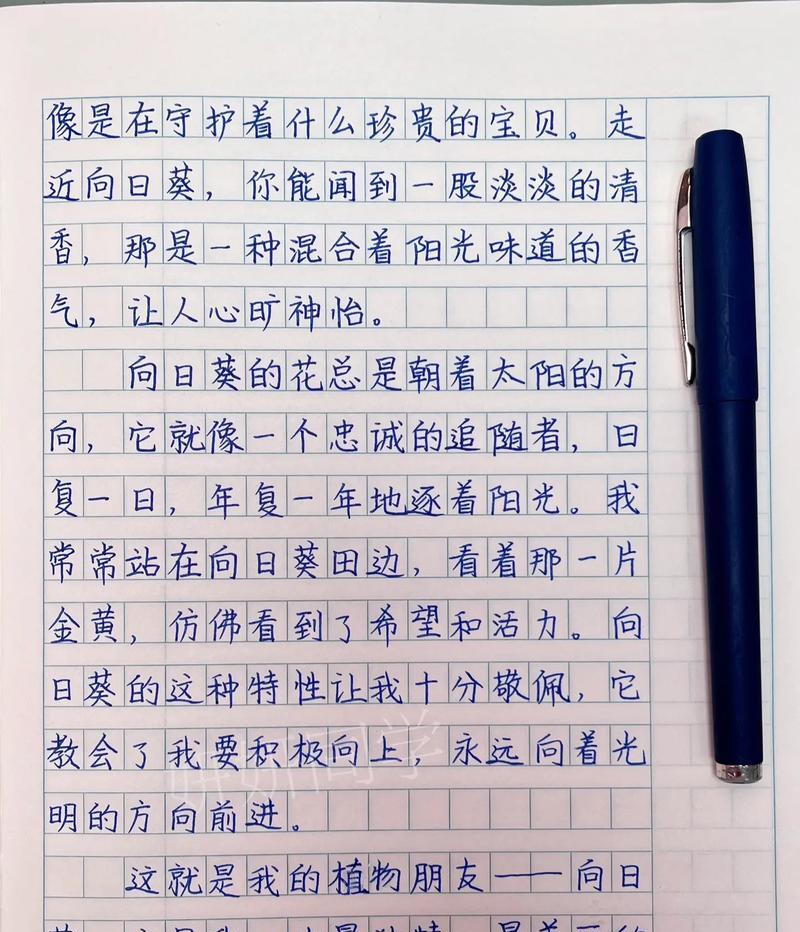 像是在守护着什么珍贵的宝贝。走
近向日葵，你能闻到一股淡淡的清
香，那是一种混合着阳光味道的香
气，让人心旷神怡。
向日葵的花总是朝着太阳的方
向，它就像一个忠诚的追随者，日
复一日，年复一年地逐着阳光。我
常常站在向日葵田边，看着那一片
金黄，仿佛看到了希望和活力。向
日葵的这种特性让我十分敬佩，它
教会了我要积极向上，永远向着光
明的方向前进。
这就是我的植物朋友——向日
妍妍同学